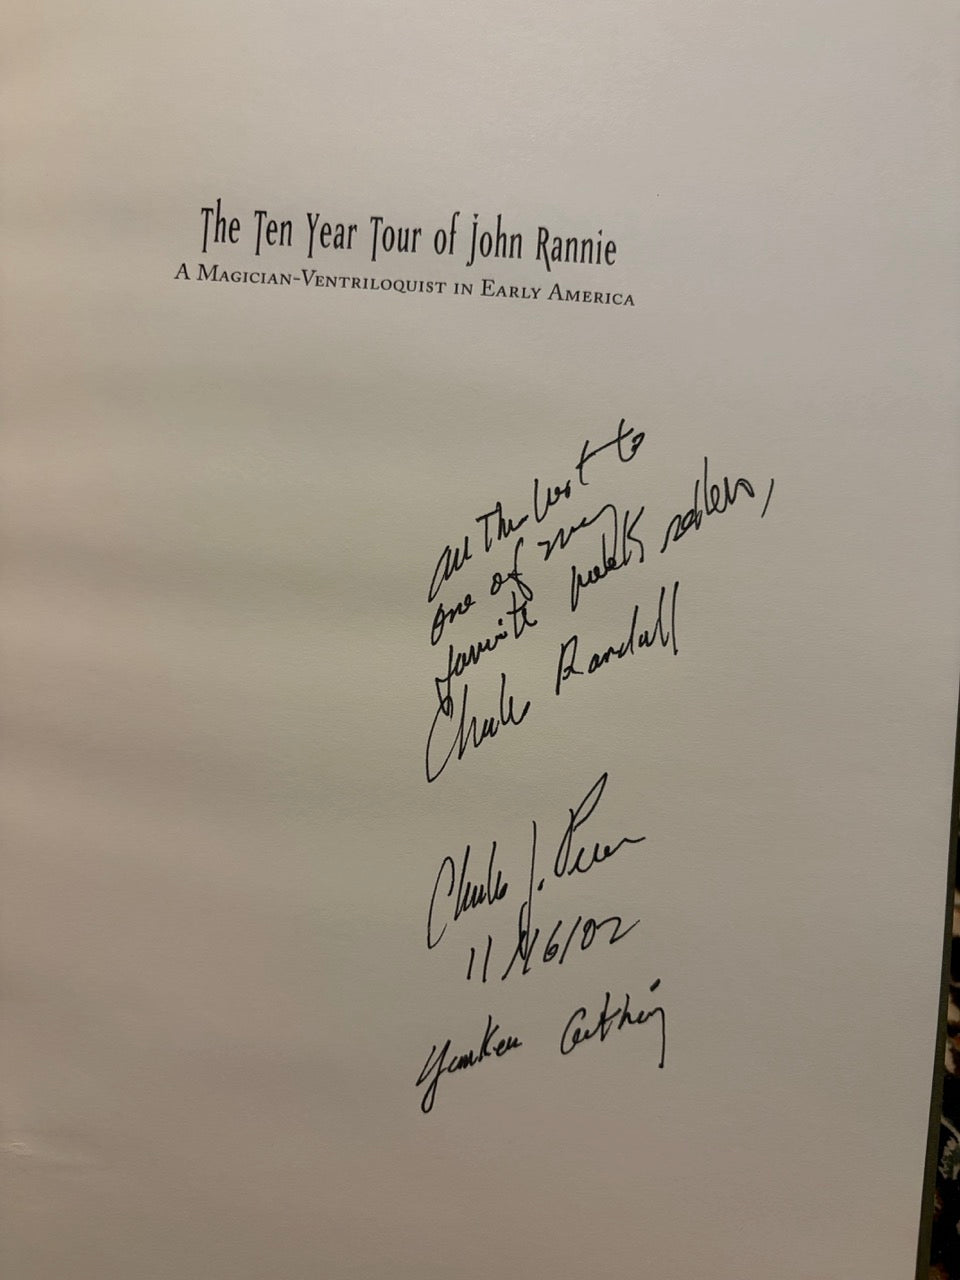 The Ten Year Tour of John Rannie
A Magician-Ventriloquist in Early America
All The best to
one of my
favorite book sellers,
Charles Randall
Charles J. Pecor
11/16/02
Yankee Gathering